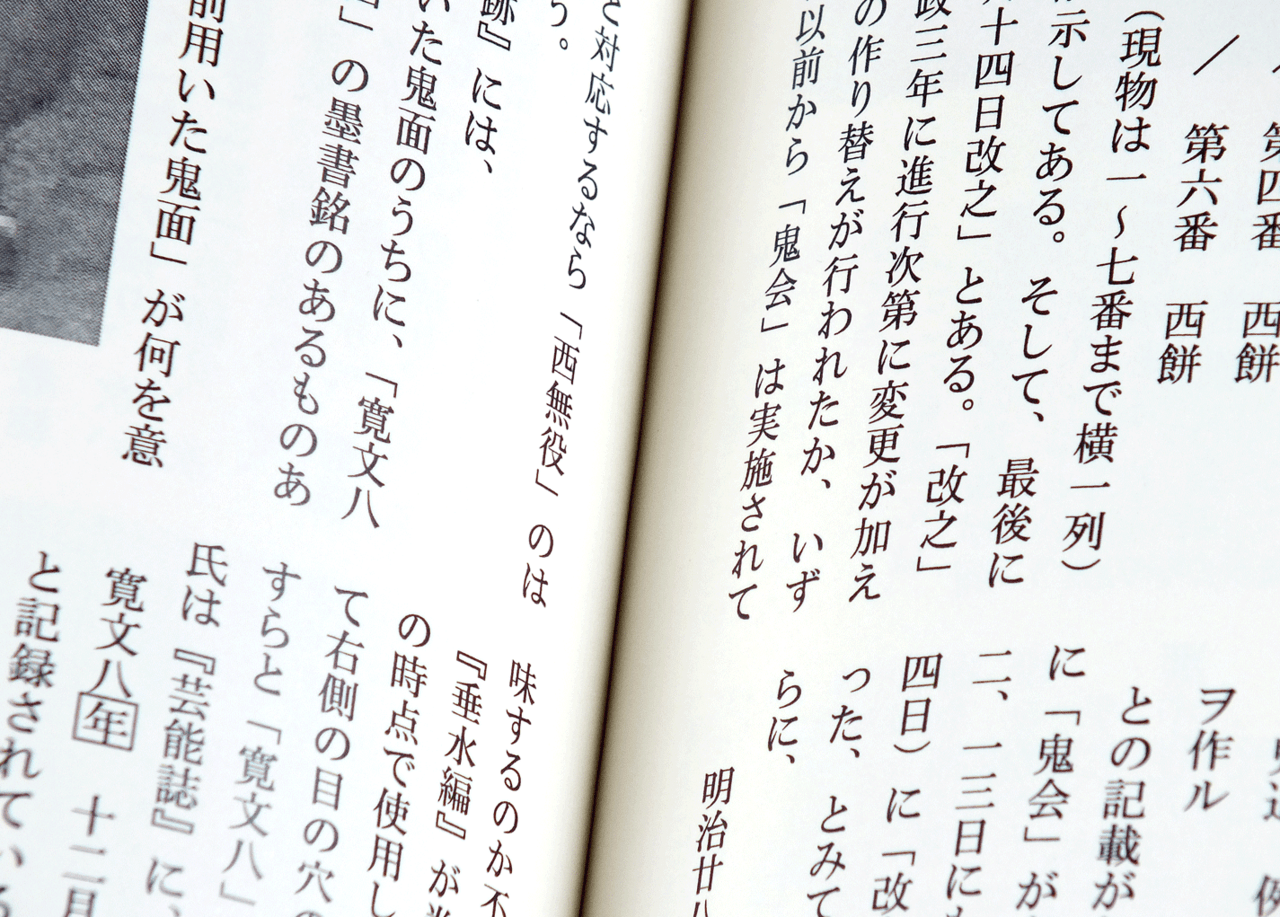 第四番　西餅
／　第六番　西餅
（現物は一～七番まで横一列）
示してある。そして、最後に
十四日改之」とある。「改之」
政三年に進行次第に変更が加え
の作り替えが行われたか、いず
以前から「鬼会」は実施されて
ヲ作ル
との記載が
に「鬼会」が
二、一三日にも
四日）に「改
った、とみて
らに、
明治廿八
対応するなら「西無役」のは
う。
跡』には、
いた鬼面のうちに、「寛文八
」の墨書銘のあるものあ
前用いた鬼面」が何を意
味するのか不
『垂水編』が
の時点で使用し
て右側の目の穴の
すらと「寛文八」
氏は『芸能誌』に、
寛文八年　十二月
と記録されている